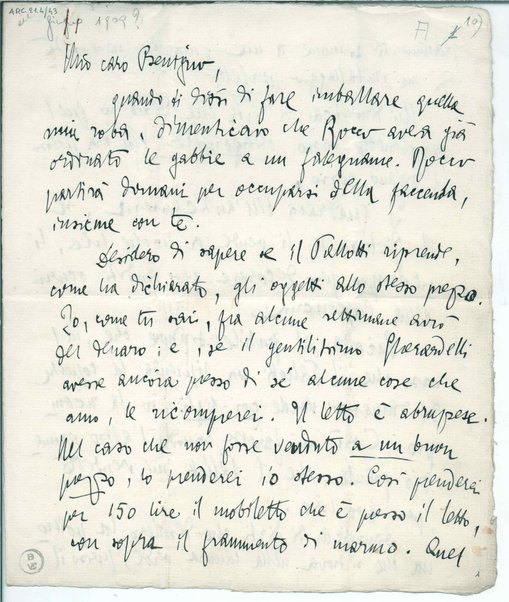 ARC.21.4/43
giugno 1909?
A 1 10)
Mio caro Benigno,
quando ti dissi di fare imballare quella
mia roba, dimenticavo che Rocco aveva già
ordinato le gabbie a un falegname. Rocco
partirà domani per occuparsi della faccenda,
insieme con te.
Desidero di sapere se il Pallotti riprende,
come ha dichiarato, gli oggetti allo stesso prezzo.
Io, come tu sai, fra alcune settimane avrò
del denaro; e, se il gentilissimo Gherardelli
avesse ancora presso di sé alcune cose che
amo, le ricomprerei. Il letto è abruzzese.
Nel caso che non fosse venduto a un buon
prezzo, lo prenderei io stesso. Così prenderei
per 150 lire il mobiletto che è presso il letto,
con sopra il frammento di marmo. Quel
1